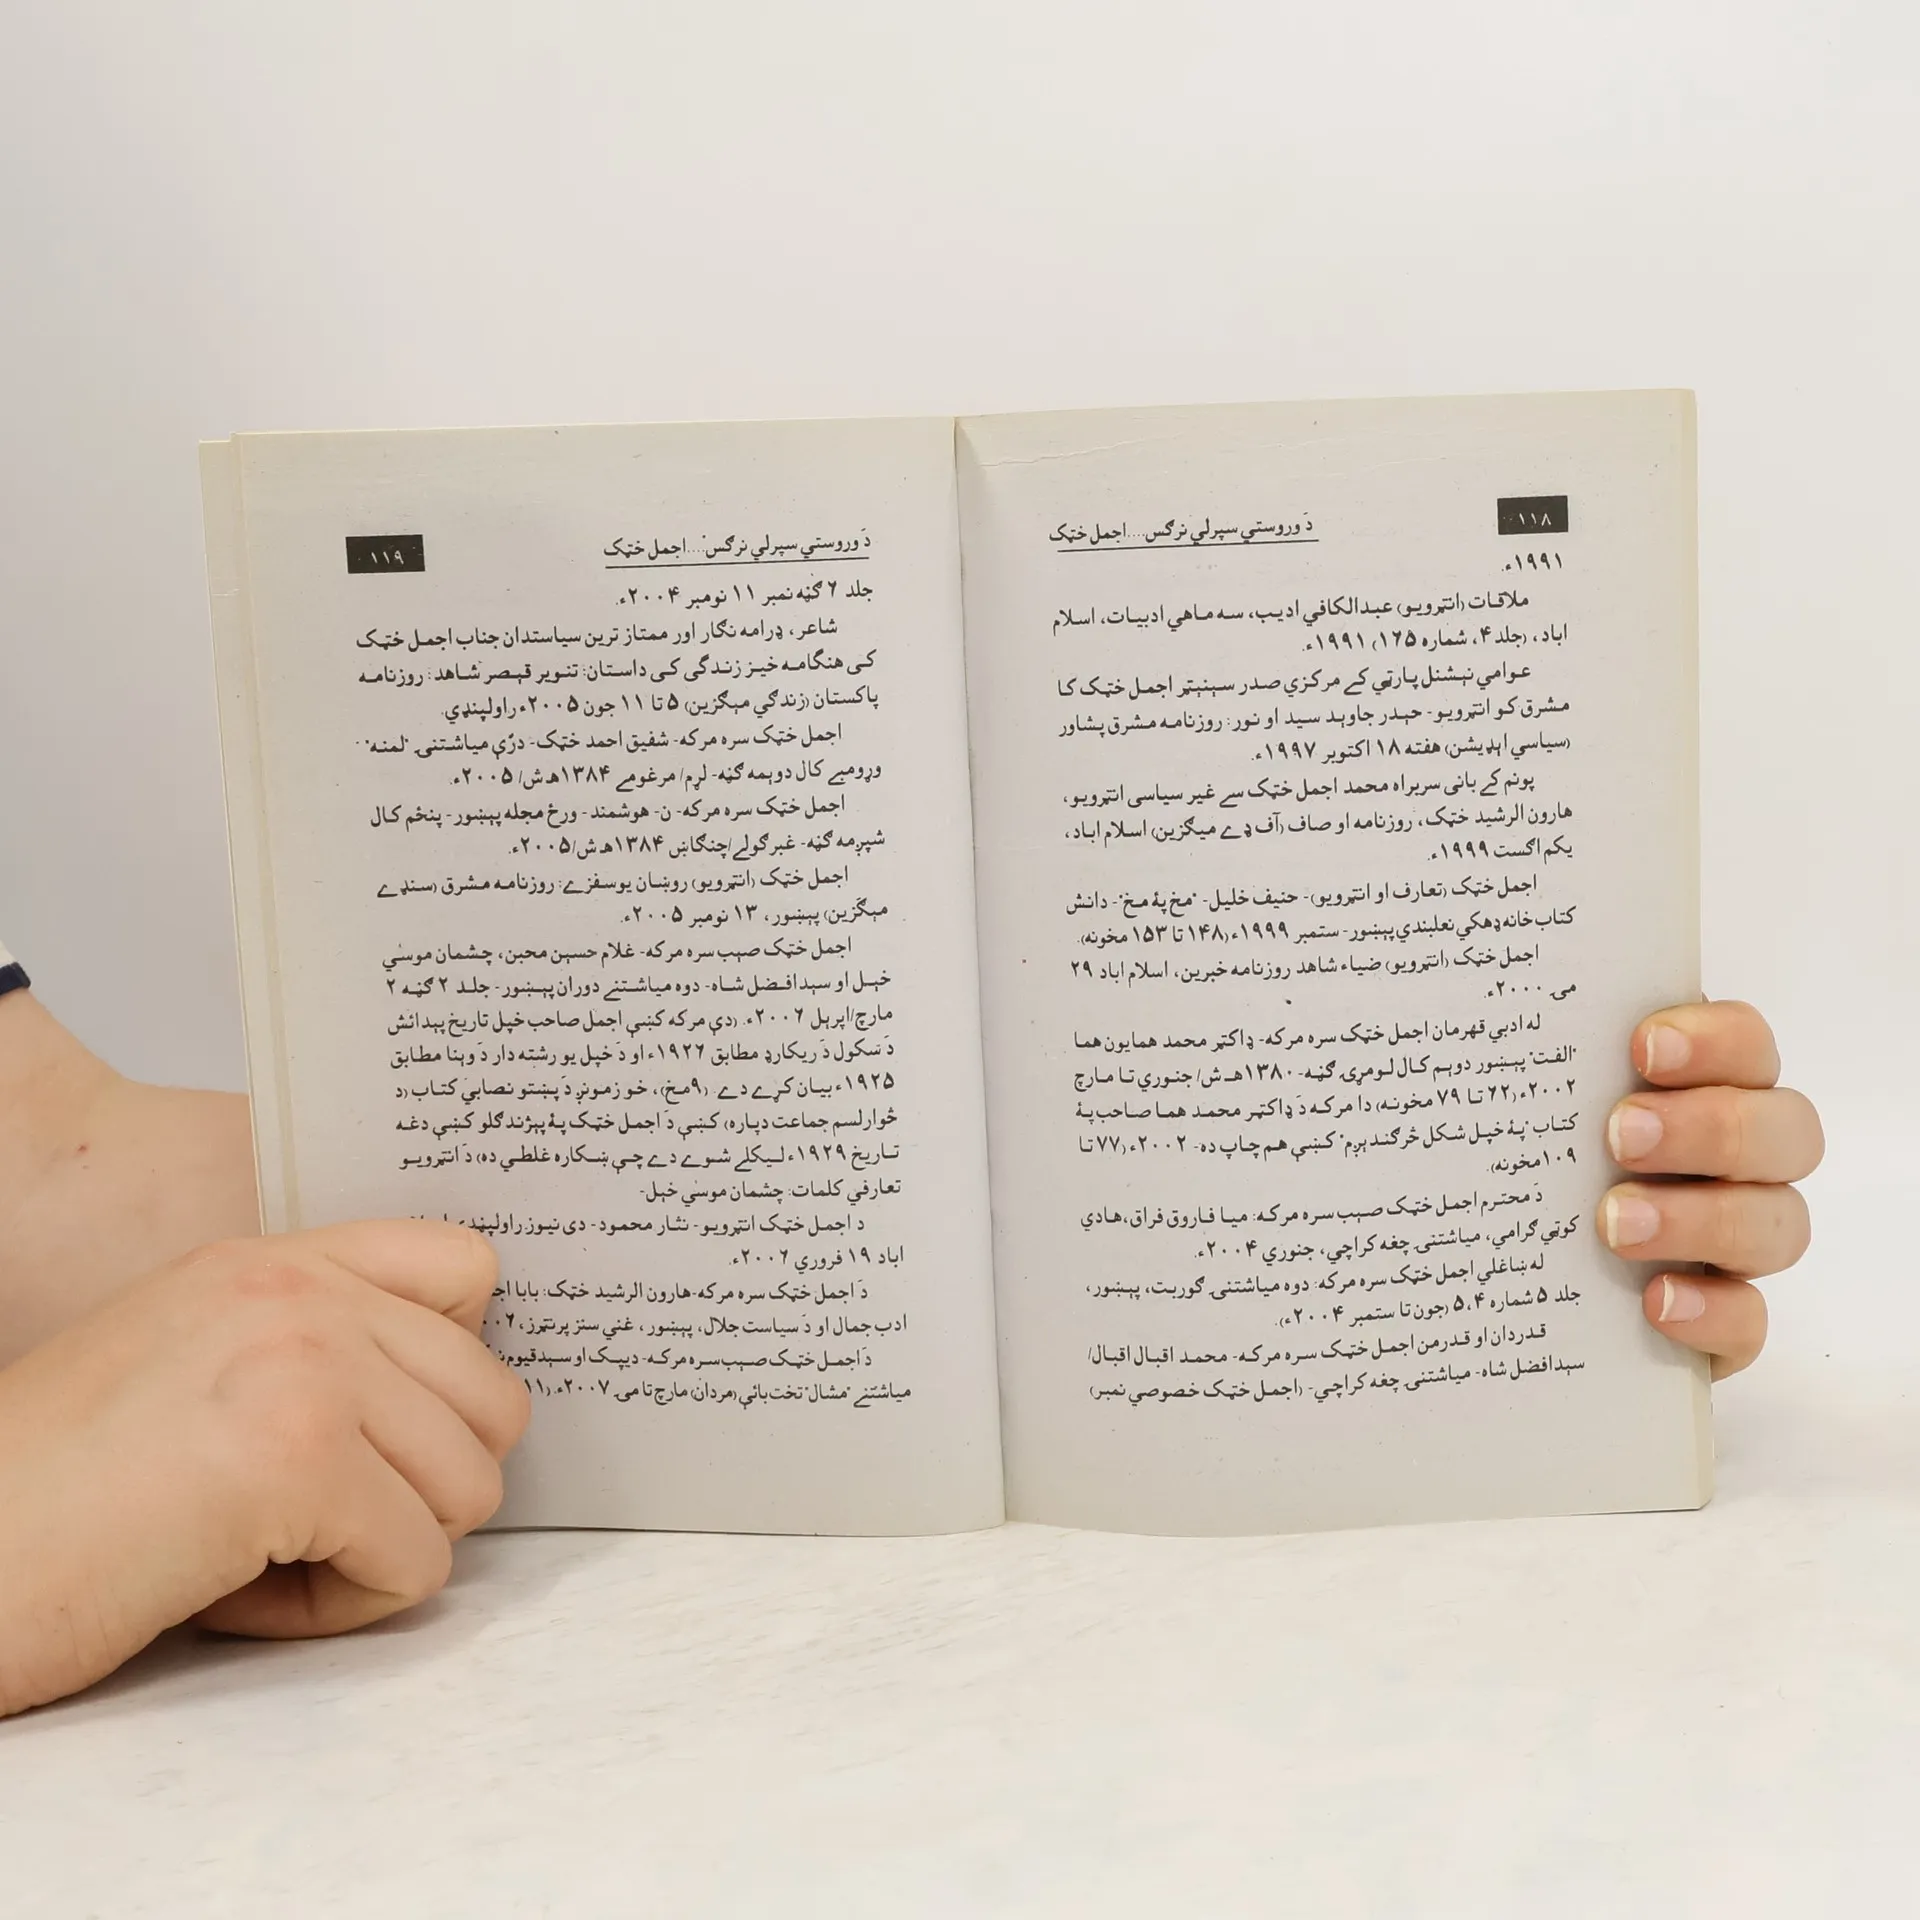 ۱۱۸
دَ وروستي سپرلي نرګس....اجمل خټک
۱۹۹۱ء.
ملاقات (انټرويو) عبدالکافي اديب، سه ماهي ادبيات، اسلام
اباد، (جلد ۴، شماره ۱۶۵) ۱۹۹۱ء.
عوامي نېشنل پارټي کے مرکزي صدر سېنېټر اجمل خټک کا
مشرق کو انټرويو- حېدر جاوېد سيد او نور: روزنامه مشرق پشاور
(سياسي اېډيشن) هفته ۱۸ اکتوبر ۱۹۹۷ء.
پونم کے بانی سربراه محمد اجمل خټک سے غير سياسی انټرويو،
هارون الرشيد خټک، روزنامه او صاف (آف ډے ميګزين) اسلام اباد،
يکم اګست ۱۹۹۹ء.
اجمل خټک (تعارف او انټرويو)- حنيف خليل- "مخ پۀ مخ"- دانش
کتاب خانه ډهکي نعلبندي پېښور- ستمبر ۱۹۹۹ء (۱۴۸ تا ۱۵۳ مخونه).
اجمل خټک (انټرويو) ضياء شاهد روزنامه خبرين، اسلام اباد ۲۹
مۍ ۲۰۰۰ء.
له ادبي قهرمان اجمل خټک سره مرکه- ډاکټر محمد همايون هما
"الفت" پېښور دوېم کال لومړۍ ګڼه- ۱۳۸۰هـ ش/ جنوري تا مارچ
۲۰۰۲ء (۶۲ تا ۷۹ مخونه) دا مرکه دَ ډاکټر محمد هما صاحب پۀ
کتاب "پۀ خپل شکل څرګندېږم" کښې هم چاپ ده- ۲۰۰۲ء (۷۷ تا
۱۰۹ مخونه).
دَ محترم اجمل خټک صېب سره مرکه: ميا فاروق فراق، هادي
کوټي ګرامي، مياشتنۍ چغه کراچي، جنوري ۲۰۰۴ء.
له ښاغلي اجمل خټک سره مرکه: دوه مياشتنۍ ګوربت، پېښور،
جلد ۵ شماره ۴، ۵ (جون تا ستمبر ۲۰۰۴ء).
قدردان او قدرمن اجمل خټک سره مرکه- محمد اقبال اقبال/
سېدافضل شاه- مياشتنۍ چغه کراچي- (اجمل خټک خصوصي نمبر)
۱۱۹
دَ وروستي سپرلي نرګس....اجمل خټک
جلد ۶ ګڼه نمبر ۱۱ نومبر ۲۰۰۴ء.
شاعر، ډرامه نګار اور ممتاز ترين سياستدان جناب اجمل خټک
کی هنګامه خيز زندګی کی داستان: تنوير قېصر شاهد: روزنامه
پاکستان (زندګي مېګزين) ۵ تا ۱۱ جون ۲۰۰۵ء راولپنډي.
اجمل خټک سره مرکه- شفيق احمد خټک- درې مياشتنۍ "لمنه"
وړومبے کال دوېمه ګڼه- لړم/ مرغومے ۱۳۸۴هـ ش/ ۲۰۰۵ء.
اجمل خټک سره مرکه- ن- هوشمند- ورځ مجله پېښور- پنځم کال
شپږمه ګڼه- غبرګولے/چنګاښ ۱۳۸۴هـ ش/۲۰۰۵ء.
اجمل خټک (انټرويو) روښان يوسفزے: روزنامه مشرق (سنډے
مېګزين) پېښور، ۱۳ نومبر ۲۰۰۵ء.
اجمل خټک صېب سره مرکه- غلام حسېن محبن، چشمان موسٰي
خېل او سېدافضل شاه- دوه مياشتنے دوران پېښور- جلد ۲ ګڼه ۲
مارچ/اپرېل ۲۰۰۶ء. (دې مرکه کښې اجمل صاحب خپل تاريخ پېدائش
دَ سکول دَ ريکارډ مطابق ۱۹۲۶ء او دَ خپل يو رشته دار دَ وېنا مطابق
۱۹۲۵ء بيان کړے دے (۹مخ)، خو زمونږ دَ پښتو نصابي کتاب (د
څوارلسم جماعت دپاره) کښې دَ اجمل خټک پۀ پېژندګلو کښې دغه
تاريخ ۱۹۲۹ء ليکلے شوے دے چې ښکاره غلطي ده) دَ انټرويو
تعارفي کلمات: چشمان موسٰي خېل-
د اجمل خټک انټرويو- نثار محمود- دی نيوز راولپنډي
اباد ۱۹ فروري ۲۰۰۶ء.
دَ اجمل خټک سره مرکه-هارون الرشيد خټک: بابا
ادب جمال او دَ سياست جلال، پېښور، غني سنز پرنټرز،
دَ اجمل خټک صېب سره مرکه- ديپک او سېدقيوم
مياشتنے "مشال" تخت بائې (مردان) مارچ تا مۍ ۲۰۰۷ء.